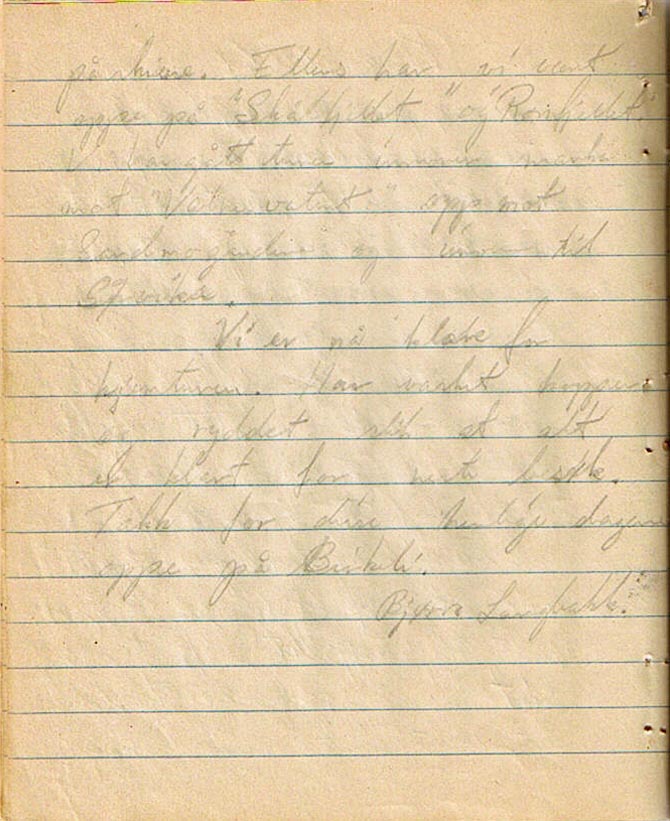 påskiene. Ellers har vi vært
oppe på "Skåfjellet" og Rønfjellet.
Vi har gått turer innover marka
mot oppe mot
og innover til

Vi er nå klare for
hjemturen. Har vasket kopper
og ryddet slik at alt
er klart for neste besøk.
Takk for disse herlige dagene
oppe på Birkeli.
Bjørn Langbakk.